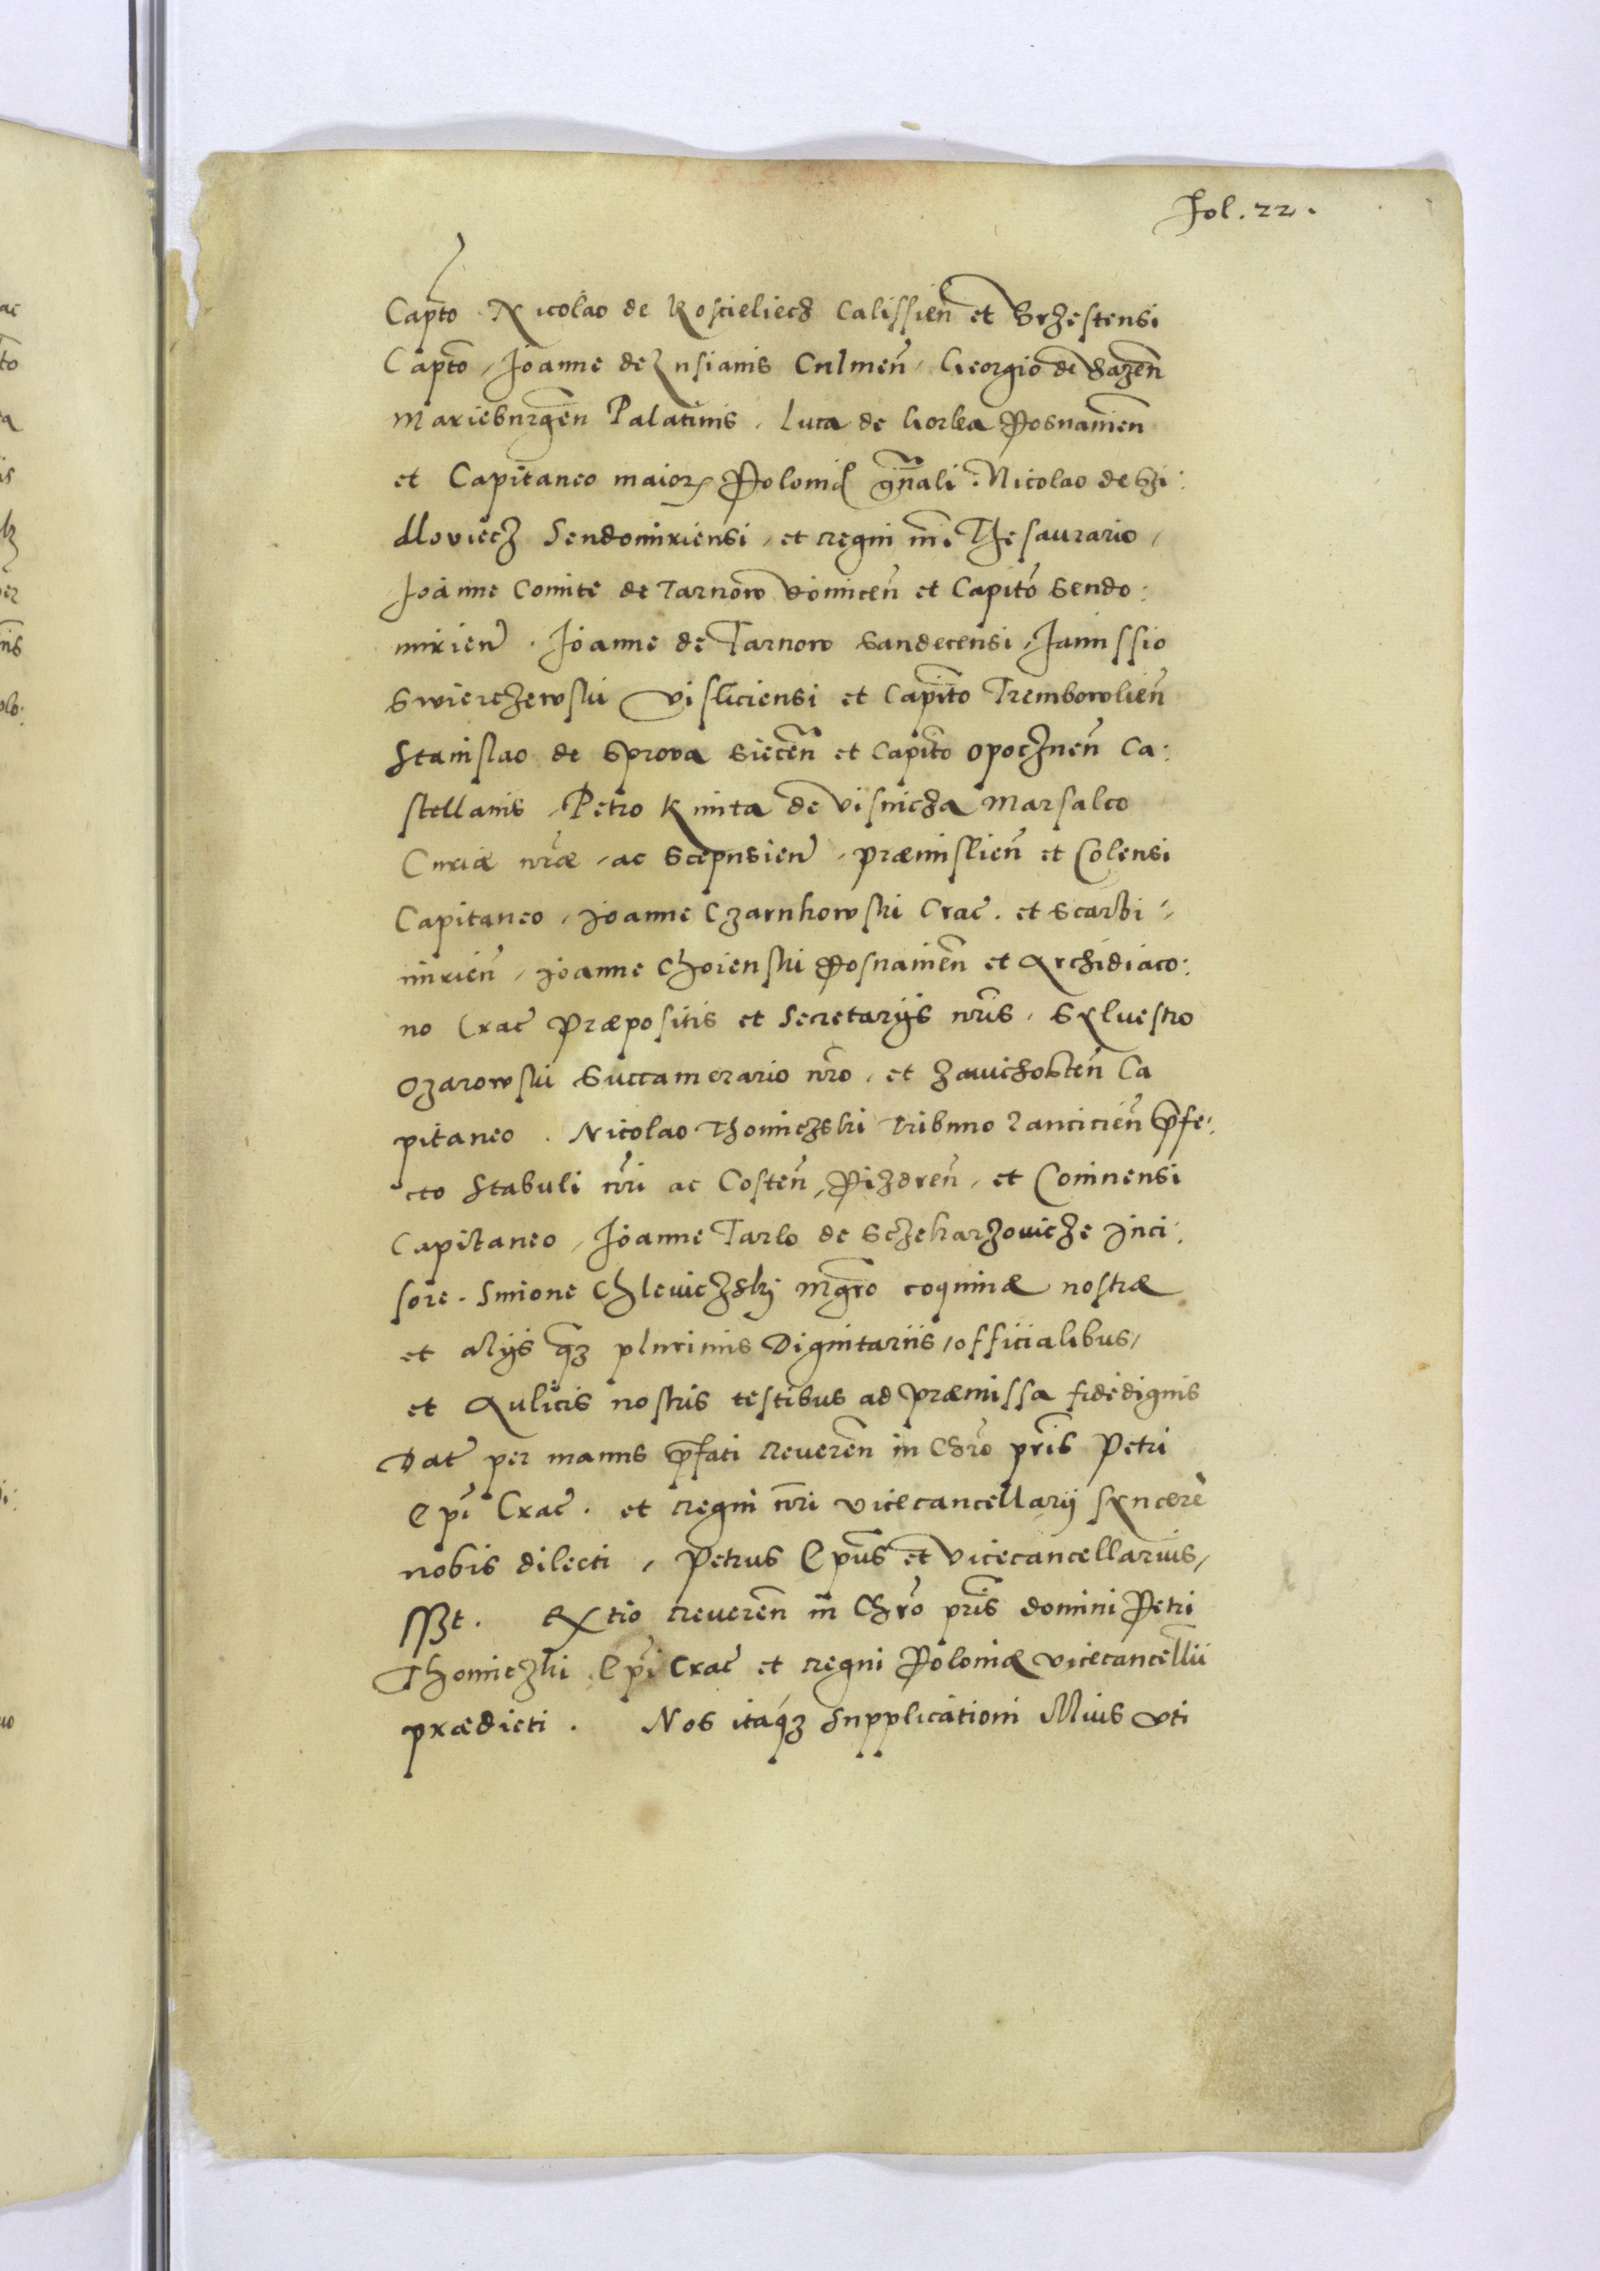 Fol. 22.
Capto Nicolao de Koscieliecz Calissien̄ et Brzestensi
Capto, Ioanne de Zusianis Culmen̄, Georgio de Bazen̄
Marieburgen̄ Palatinis, Luca de Gorka Posnanien̄
et Capitaneo maior Poloniæ gn̄ali. Nicolao de Szi:
dloviecz Sendomiriensi, et regni nr̄i Thesaurario,
Ioanne Comite de Tarnow Voinicen̄ et Capito Sendo:
mirien̄. Ioanne de Tarnow Sandecensi, Ianussio
Swierczewski Visliciensi et Capito Trembowlien̄
Stanislao de Sprova Siecen̄ et Capito Opocznen̄ Ca:
stellanis, Petro Kmita de Visnicza Marsalco
Curiæ nr̄æ, ac Scepusien̄, Præmislien̄ et Colensi
Capitaneo, Ioanne Czarnkowski Crac̄. et Scarbi:
mirien̄, Ioanne Choienski Posnanien̄ et Archidiaco:
no Crac̄ Præpositis et Secretarijs nr̄is, Sylvestro
Ozarowski Succamerario nr̄o, et Zawichosten̄ Ca
pitaneo. Nicolao Thomiczski Tribuno Lancicien̄ p̄fe:
cto Stabuli nr̄i ac Costen̄, Pizdren̄, et Coninensi
Capitaneo, Ioanne Tarlo de Sczekarzovicze Inci:
sore. Simone Chleviczskj Mgr̄o coquinæ nostræ
et Alijs qz plurimis Dignitariis, officialibus,
et Aulicis nostris testibus ad præmissa fidedignis
Dat̄ per manus p̄fati Reveren̄ in Chr̄o pr̄is Petri
Ep̄i Crac̄. et regni nr̄i Vicecancellarij syncerè
nobis dilecti, Petrus Ep̄us et Vicecancellarius,
sszt. Rx̄tio Reveren̄ in Chr̄o pr̄is domini Petri
Thomiczki Ep̄i Crac̄ et regni Poloniæ Vicecancell̄ii
prædicti. Nos itaqz supplicationi Illius uti